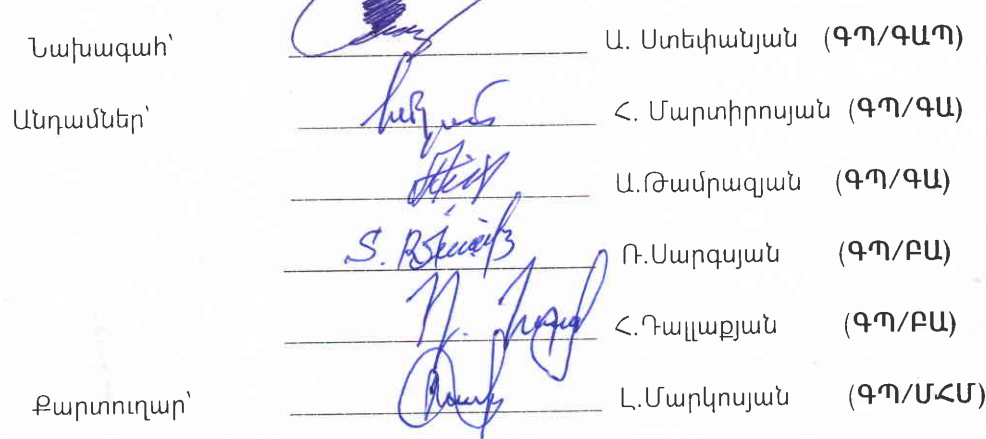 Նախագահ՝ Ա. Ստեփանյան (ԳՊ/ԳԱՊ)
Անդամներ՝ Հ. Մարտիրոսյան (ԳՊ/ԳԱ)
Ա.Թամրազյան (ԳՊ/ԳԱ)
Ռ.Սարգսյան (ԳՊ/ԲԱ)
Հ.Դալլաքյան (ԳՊ/ԲԱ)
Քարտուղար՝ Լ.Մարկոսյան (ԳՊ/ՄՀՄ)